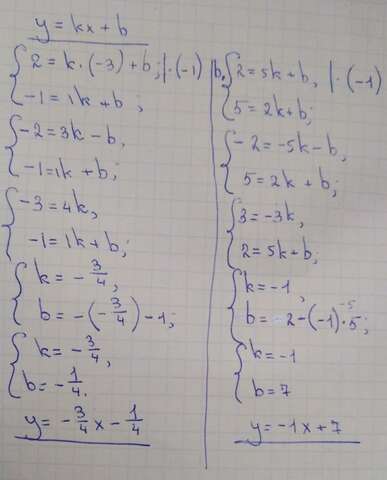 y = kx + b
2 = k · (-3) + b; | · (-1)
-1 = 1k + b;
-2 = 3k - b,
-1 = 1k + b;
-3 = 4k,
-1 = 1k + b;
k = -3/4,
b = -(-3/4) - 1;
k = -3/4,
b = -1/4.
y = -3/4 x - 1/4
b. 2 = 5k + b, | · (-1)
5 = 2k + b;
-2 = -5k - b,
5 = 2k + b;
3 = -3k,
2 = 5k + b;
k = -1,
-5
b = 2 - (-1) · 5;
k = -1
b = 7
y = -1x + 7